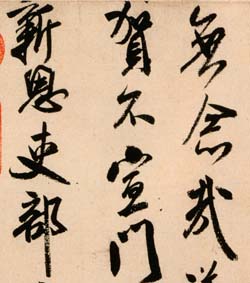 無念哉
賀不宣門
新恩吏部